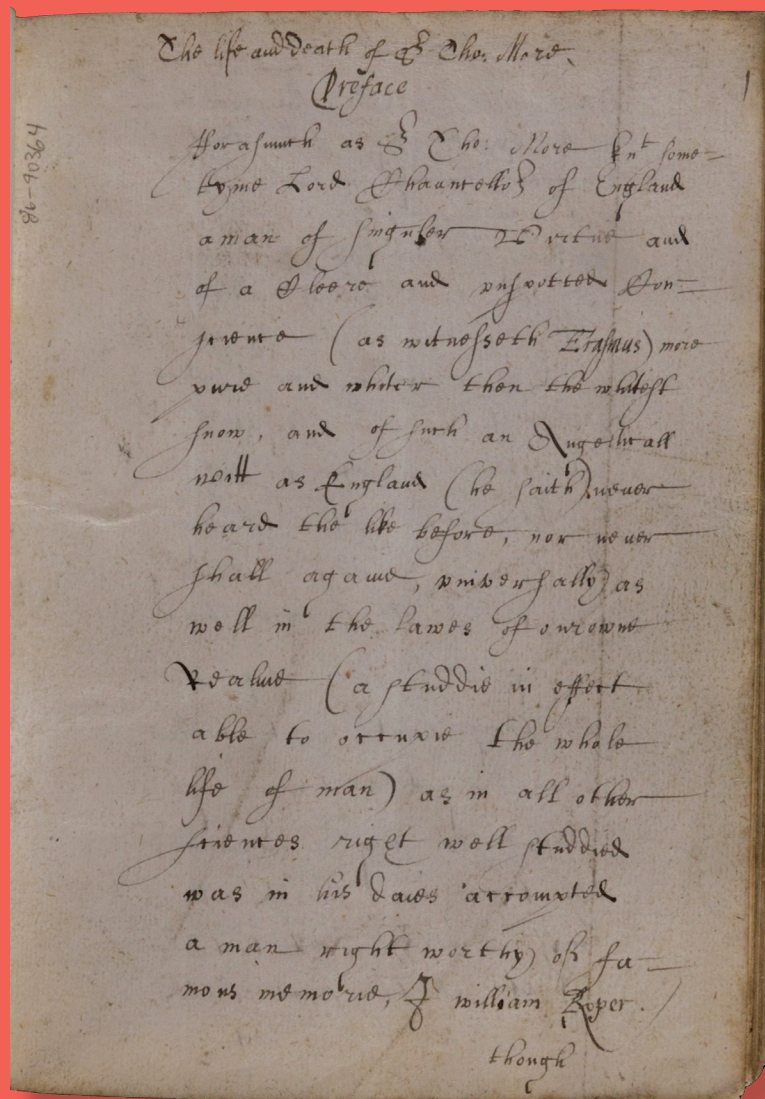 The life and death of Sr Tho: More.
Preface
1
fforasmuch as Sr Tho: More knt some=
tyme Lord Chauncellor of England
a man of singuler Virtue and
of a Cleere and vnspotted Con=
science (as witnesseth Erasmus) more
pure and whiter then the whitest
snow, and of such an Angelicall
witt as England (he saith) never
heard the like before, nor never
shall againe, vniversally as
well in the lawes of our owne
Realme (a studdie in effect
able to occupie the whole
life of man) as in all other
sciences right well studdied
was in his daies accompted
a man right worthy of fa=
mous memorie, I william Roper.
though